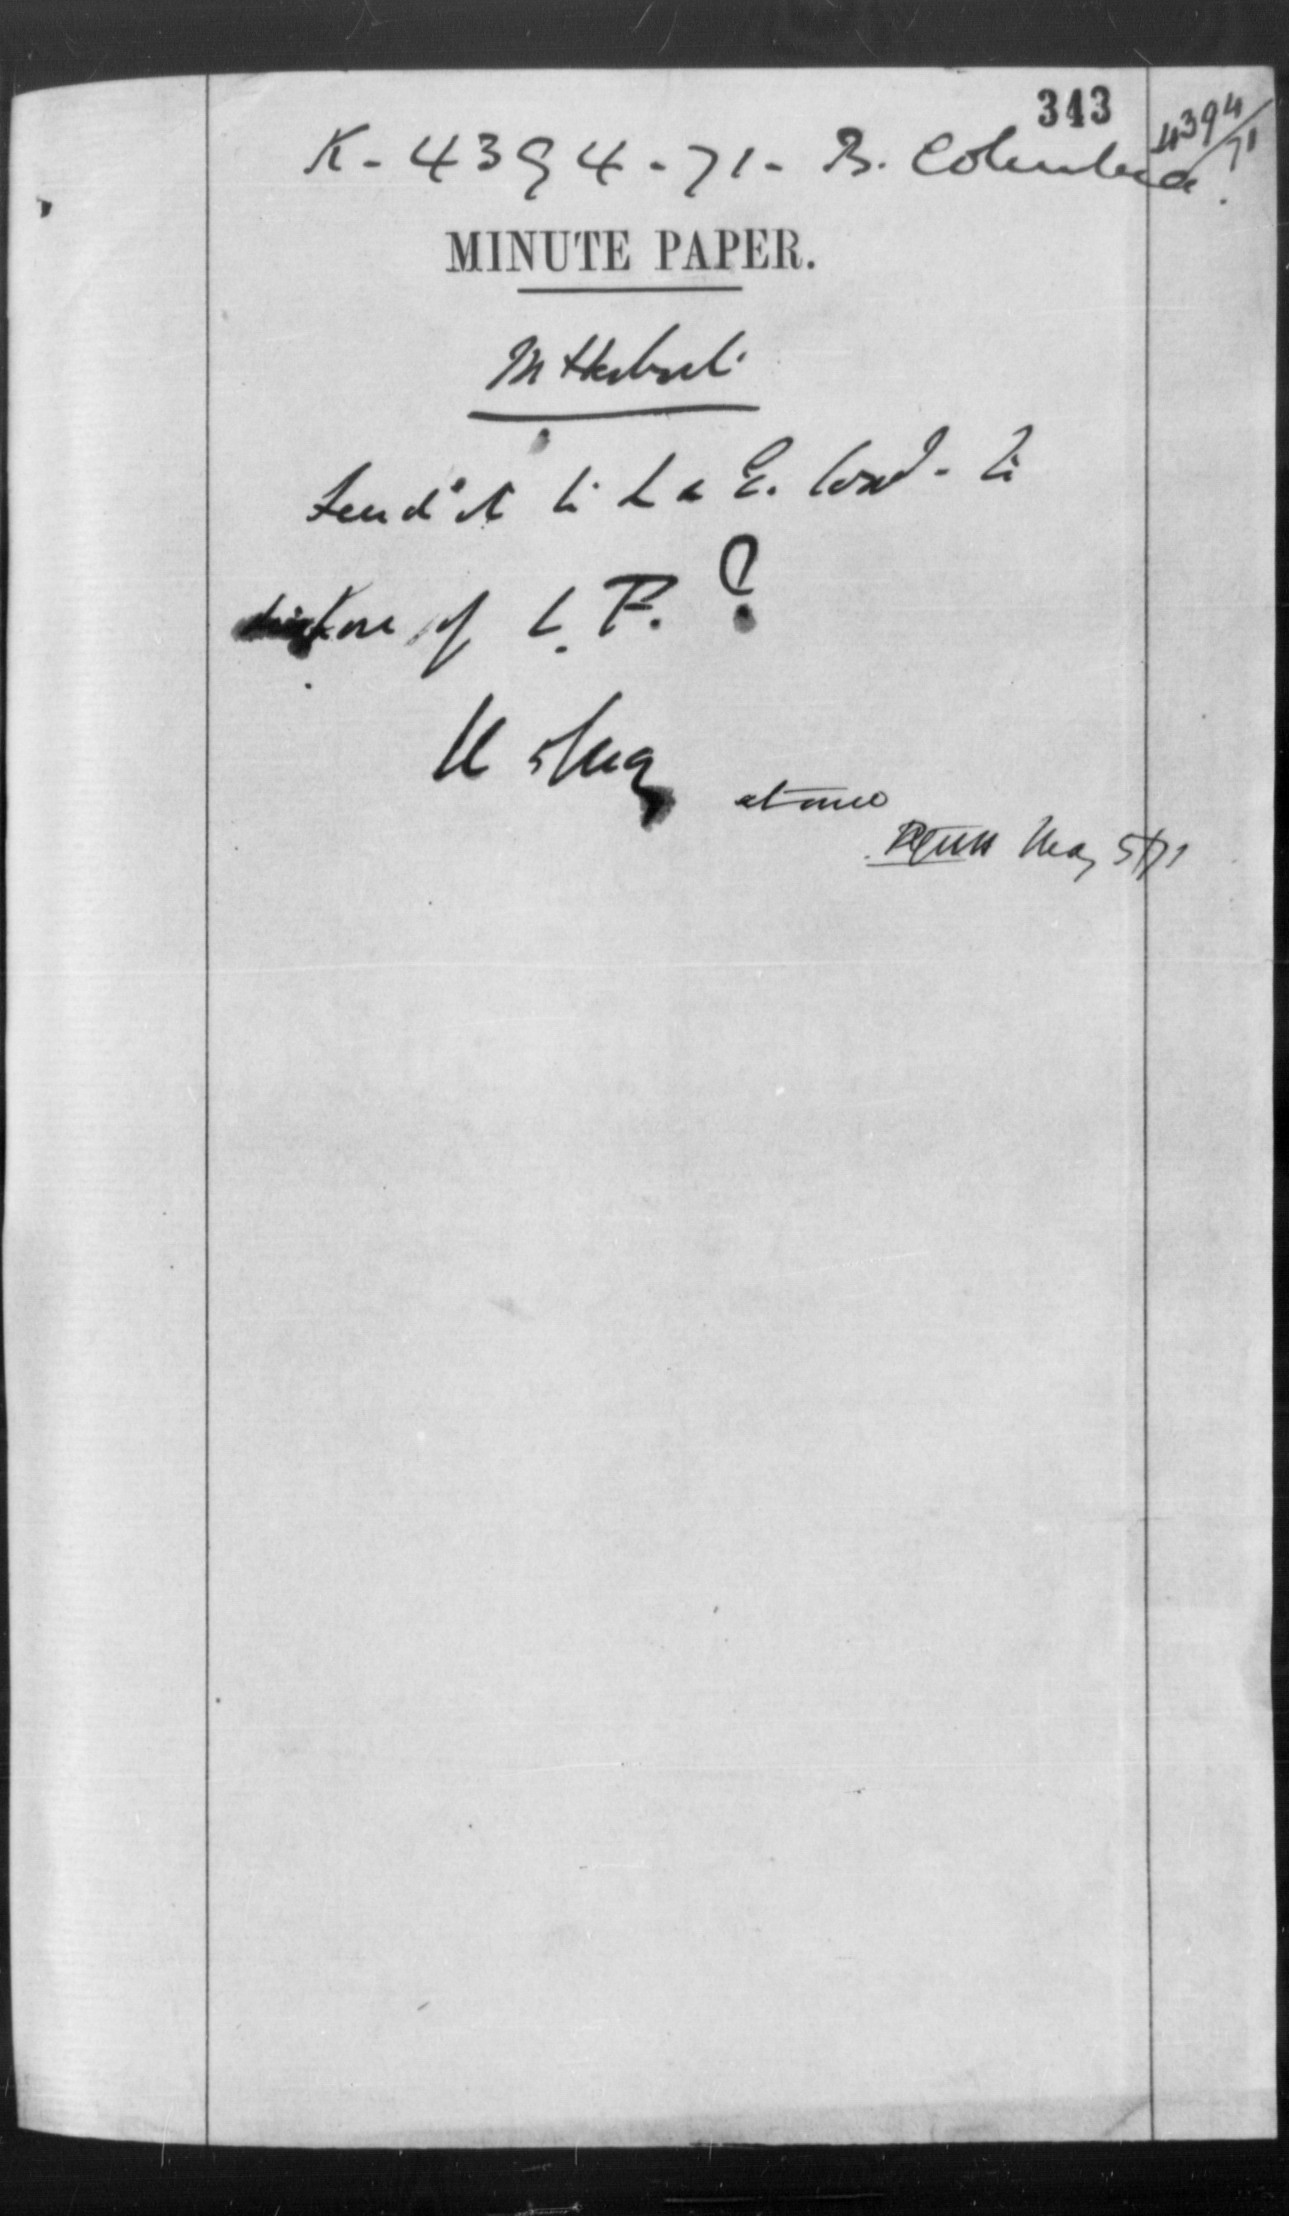 343
4394/71
K-4394-71- B. Columbia.
MINUTE PAPER.
Mr Herbert
Send it to L & E. Cond - to
of L. P.?
5 May
at once
RGWH May 5/71